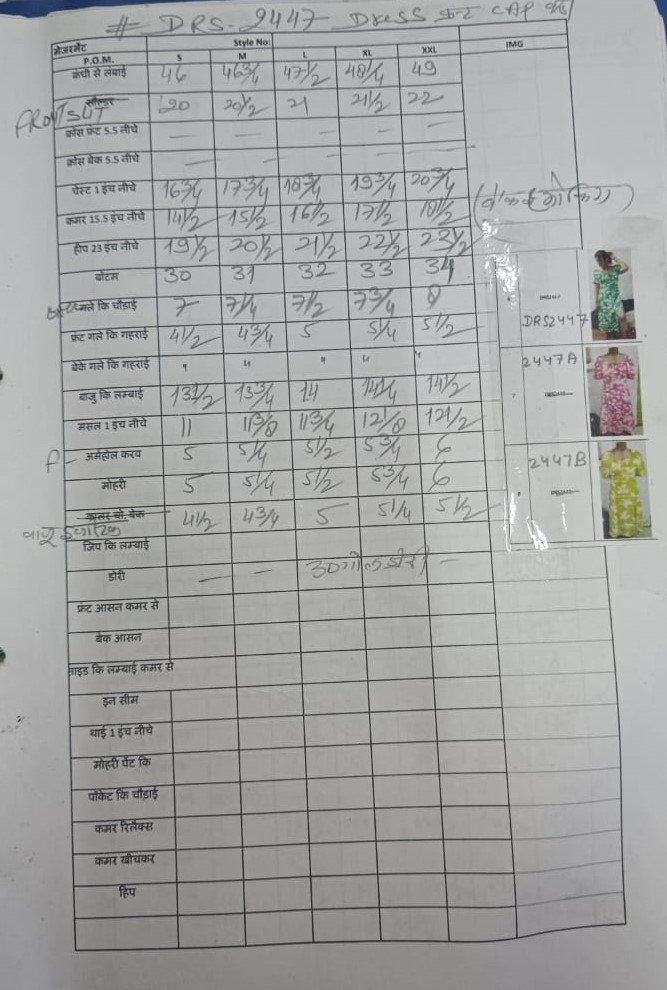 # DRS-2447 Dress CAP
मेजरमेंट Style No: IMG
P.O.M. S M L XL XXL
कंधी से लंबाई 46 46 3/4 47 1/2 48 1/4 49
FRONT SLIT सोल्डर 20 20 1/2 21 21 1/2 22
क्रोस फ्रंट 5.5 नीचे — — — — —
क्रोस बेक 5.5 नीचे — — — — —
चेस्ट 1 इंच नीचे 16 3/4 17 3/4 18 3/4 19 3/4 20 3/4
कमर 15.5 इंच नीचे 14 1/2 15 1/2 16 1/2 17 1/2 18 1/2
हीप 23 इंच नीचे 19 1/2 20 1/2 21 1/2 22 1/2 23 1/2
बोटम 30 31 32 33 34
गले कि चौड़ाई 7 7 1/4 7 1/2 7 3/4 8
DRS2447
फ्रंट गले कि गहराई 4 1/2 4 3/4 5 5 1/4 5 1/2
बेके गले कि गहराई " " " " "
2447A
बाजु कि लम्बाई 13 1/2 13 3/4 14 14 1/4 14 1/2
मसल 1 इंच नीचे 11 11 3/8 11 3/4 12 1/8 12 1/2
अर्महोल करव 5 5 1/4 5 1/2 5 3/4 6
2447B
मोहरी 5 5 1/4 5 1/2 5 3/4 6
कालर चो. बेक 4 1/2 4 3/4 5 5 1/4 5 1/2
बाजू इलास्टिक
जिप कि लम्बाई
डोरी — — 30 गोल डोरी —
फ्रंट आसन कमर से
बेक आसन
साइड कि लम्बाई कमर से
इन सीम
थाई 1 इंच नीचे
मोहरी पेंट कि
पॉकेट कि चौड़ाई
कमर रिलैक्स
कमर खीचकर
हिप